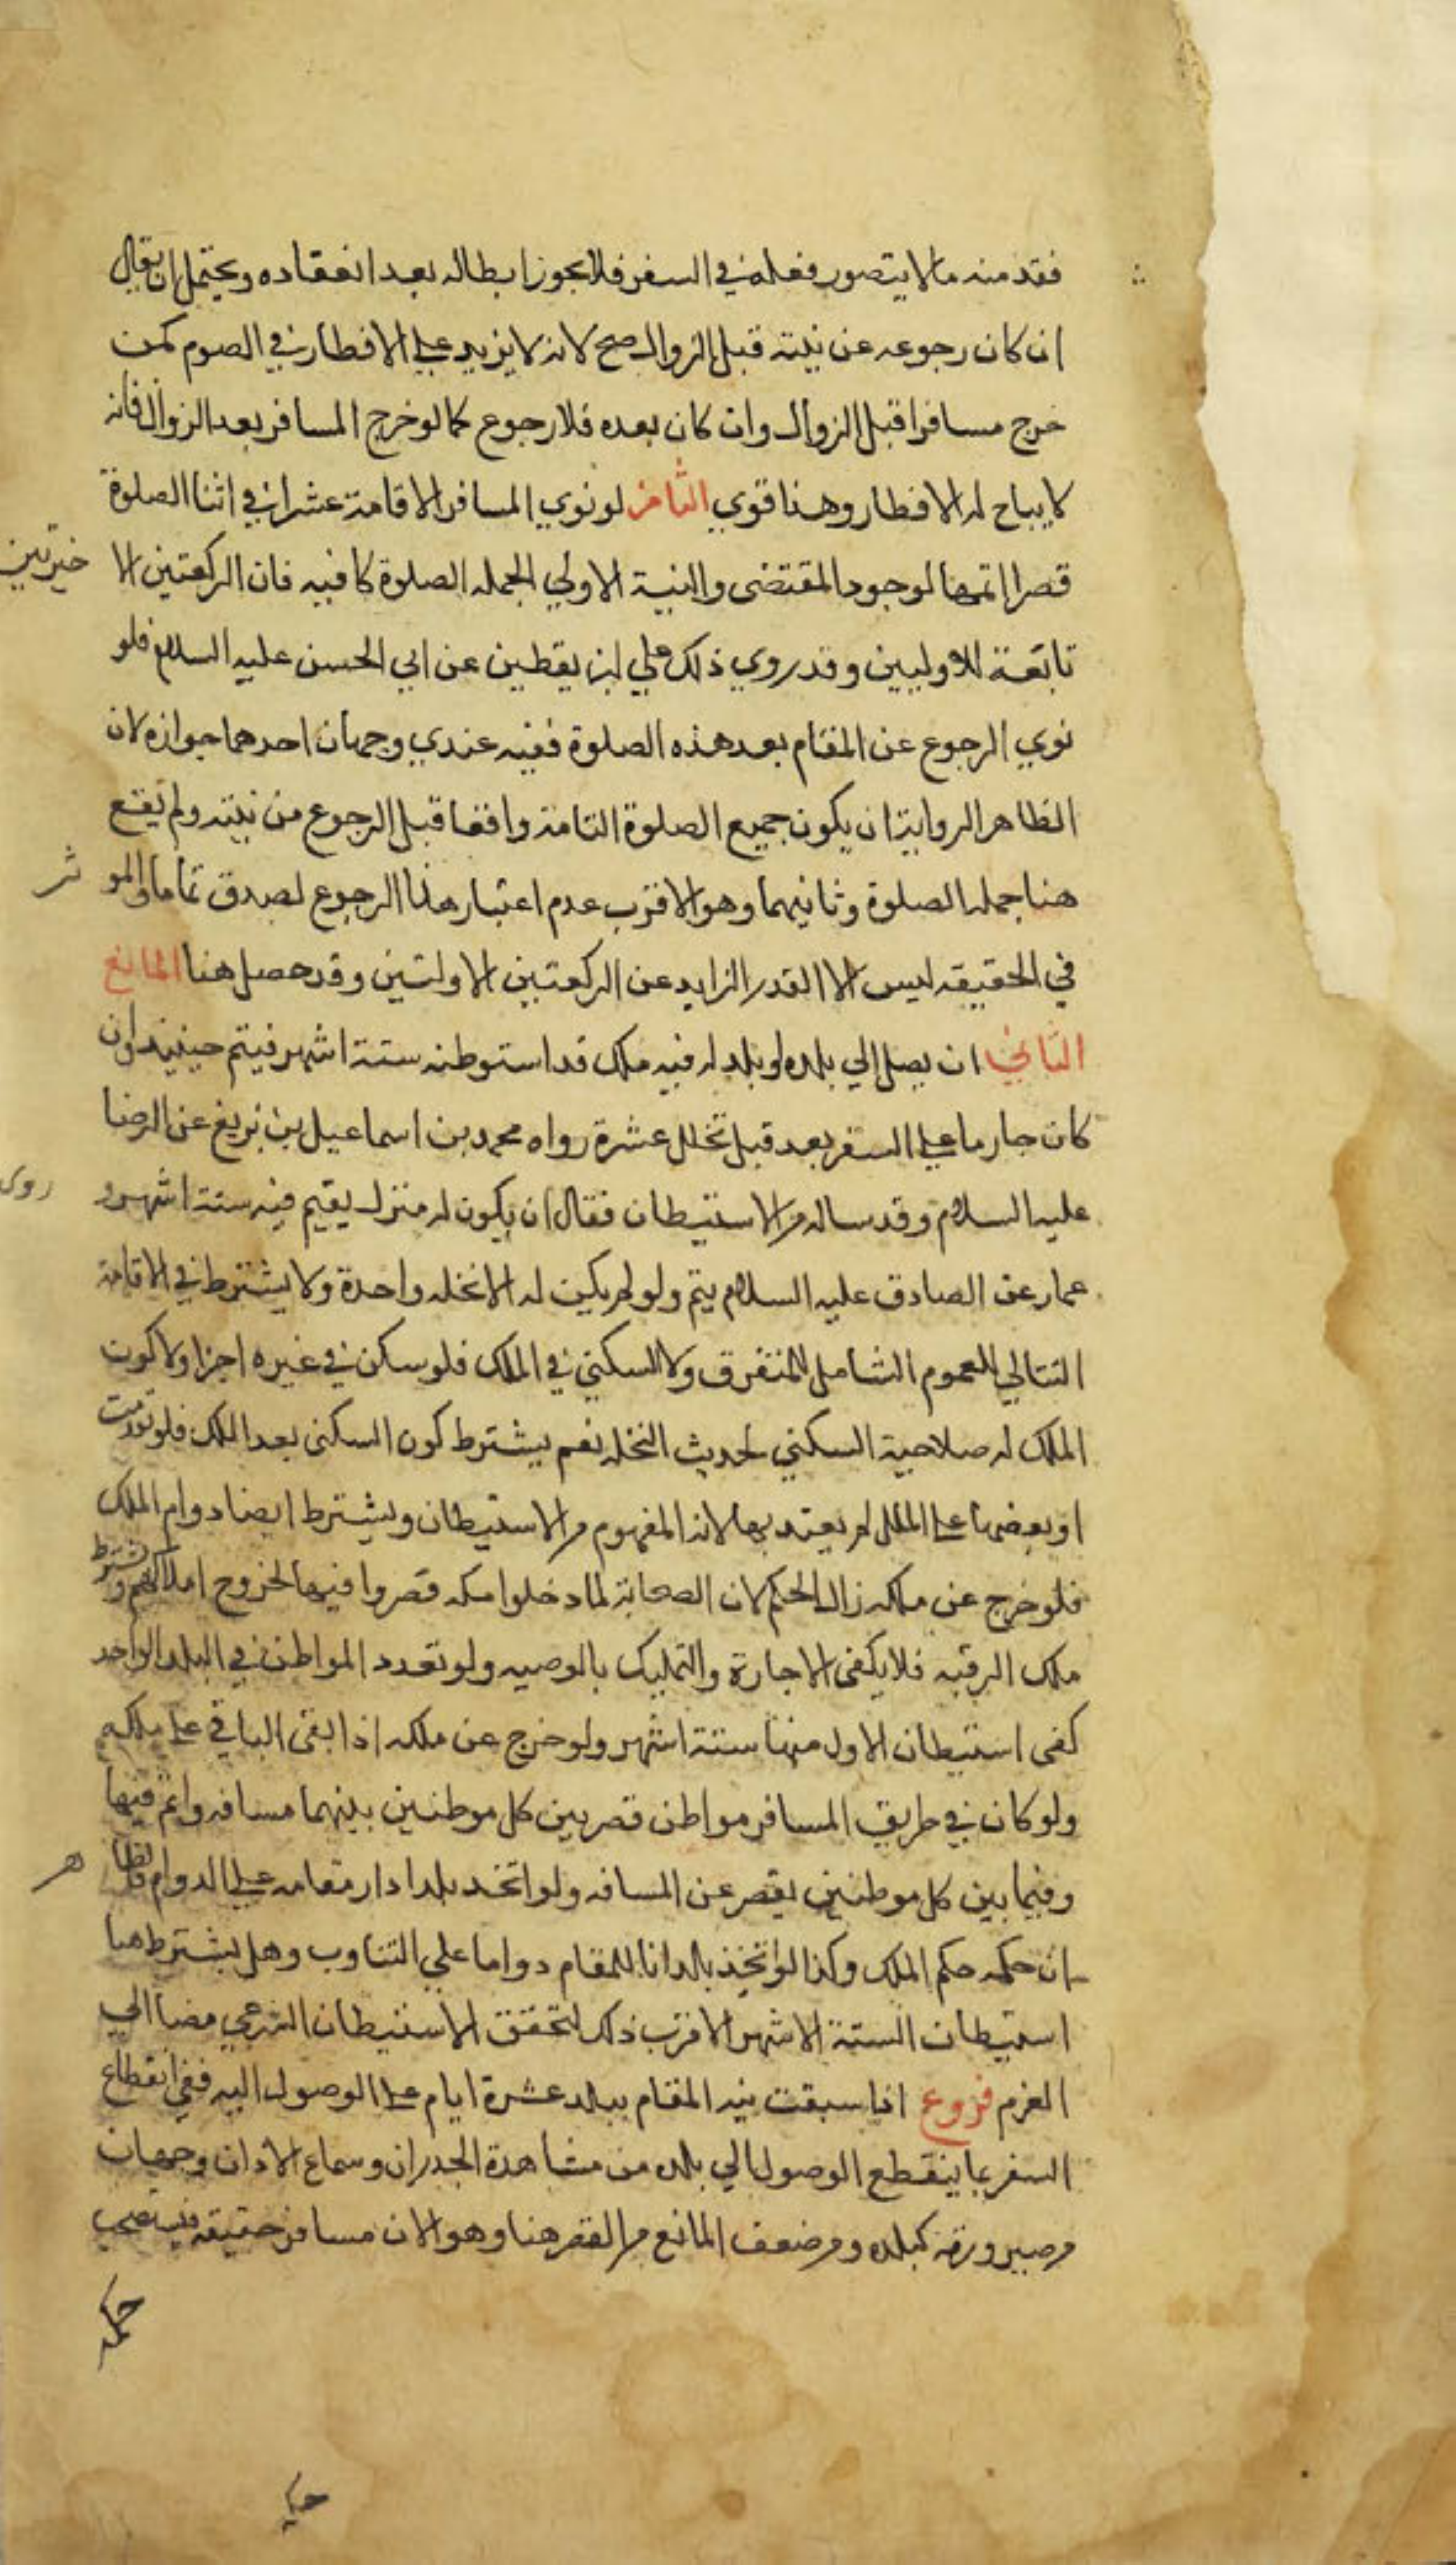 فقد منه ما لا يتصور فعله في السفر فلا يجوز ابطاله بعد انعقاده ويحتمل ان يقال
ان كان رجوعه عن نيته قبل الزوال صح لانه لا يزيد علي الافطار في الصوم كمن
خرج مسافرا قبل الزوال وان كان بعده فلا رجوع كما لو خرج المسافر بعد الزوال فانه
لا يباح له الافطار وهذا قوي الثامن لو نوي المسافر الاقامة عشرا في اثنا الصلوة
قصرا اتمها لوجود المقتضى والنية الاولي لجمله الصلوة كافيه فان الركعتين الا خيرتين
تابعة للاوليين وقد روي ذلك علي بن يقطين عن ابي الحسن عليه السلام فلو
نوي الرجوع عن المقام بعد هذه الصلوة ففيه عندي وجهان احدهما جوازه لان
الظاهر الرواية ان يكون جميع الصلوة التامة واقعا قبل الرجوع من نيته ولم يقع
هنا جمله الصلوة وثانيهما وهو الاقرب عدم اعتبار هذا الرجوع لصدق تماما والمو ثر
في الحقيقه ليس الا القدر الزايد عن الركعتين الاولتين وقد حصل هنا المانع
الثاني ان يصل الي بلده او بلد له فيه ملك قد استوطنه ستة اشهر فيتم حينئذ وان
كان جازما علي السفر بعد قبل تخلل عشرة رواه محمد بن اسماعيل بن بزيع عن الرضا
عليه السلام وقد ساله من الاستيطان فقال ان يكون له منزل يقيم فيه ستة اشهر و روى
عمار عن الصادق عليه السلام يتم ولو لم يكن له الا نخله واحدة ولا يشترط في الاقامة
التتالي للعموم الشامل للمتفرق ولا السكني في الملك فلو سكن في غيره اجزا ولا كون
الملك له صلاحية السكني لحديث النخله نعم يشترط كون السكنى بعد الملك فلو تقدمت
او بعضها علي الملك لم يعتد بها لانه المفهوم من الاستيطان ويشترط ايضا دوام الملك
فلو خرج عن ملكه زال الحكم لان الصحابة لما دخلوا مكه قصروا فيها لخروج املاكهم ويشترط
ملك الرقبه فلا يكفى الاجارة والتمليك بالوصيه ولو تعدد المواطن في البلد الواحد
كفى استيطان الاول منها ستة اشهر ولو خرج عن ملكه اذا بقى الباقي علي ملكه
ولو كان في طريق المسافر مواطن قصر بين كل موطنين بينهما مسافه واتم فيها
وفيما بين كل موطنين يقصر عن المسافه ولو اتخذ بلدا دار مقامه علي الدوام فالظا هر
ان حكمه حكم الملك وكذا لو اتخذ بلدانا للمقام دواما علي التناوب وهل يشترط هنا
استيطان الستة الاشهر الاقرب ذلك لتحقق الاستيطان الشرعي مضافا الي
العزم فروع اذا سبقت نية المقام ببلد عشرة ايام علي الوصول اليه ففي انقطاع
السفر بما ينقطع الوصول الي بلده من مشاهدة الجدران وسماع الاذان وجهان
من صيرورته كبلده ومن ضعف المانع من القصر هنا وهو الان مسافر حقيقه فيستصحب
حكمه